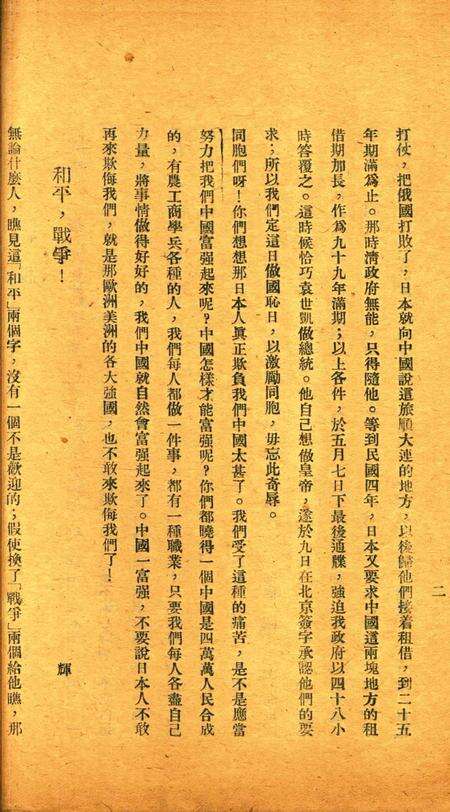 二
打仗，把俄國打敗了，日本就向中國說這旅順大連的地方，以後歸他們接着租借，到二十五
年期滿爲止。那時清政府無能，只得隨他。等到民國四年，日本又要求中國這兩塊地方的租
借期加長，作爲九十九年滿期；以上各件，於五月七日下最後通牒，強迫我政府以四十八小
時答覆之。這時候恰巧袁世凱做總統。他自己想做皇帝，遂於九日在北京簽字承認他們的要
求；所以我們定這日做國恥日，以激勵同胞，毋忘此奇辱。
同胞們呀！你們想想那日本人眞正欺負我們中國太甚了。我們受了這種的痛苦，是不是應當
努力把我們中國富强起來呢？中國怎樣才能富强呢？你們都曉得一個中國是四萬萬人民合成
的，有農工商學兵各種的人，我們每人都做一件事，都有一種職業，只要我們每人各盡自己
力量，將事情做得好好的，我們中國就自然會富强起來了。中國一富强，不要說日本人不敢
再來欺侮我們，就是那歐洲美洲的各大強國，也不敢來欺侮我們了！
和平，戰爭！
輝
無論什麼人，瞧見這「和平」兩個字，沒有一個不是歡迎的；假使換了「戰爭」兩個給他瞧，那